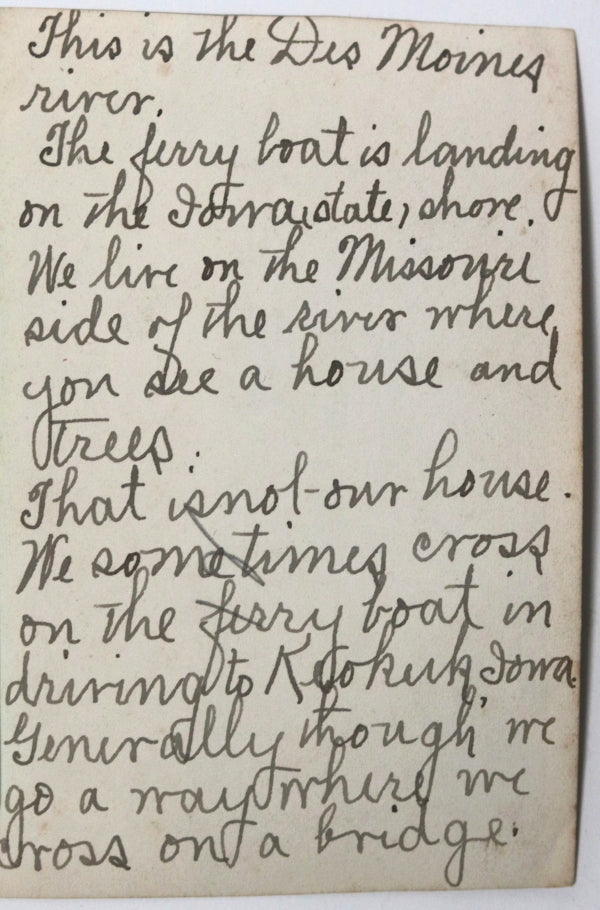 This is the Des Moines
river.
The ferry boat is landing
on the Iowa, state, shore.
We live on the Missouri
side of the river where
you see a house and
trees.
That is not our house.
We sometimes cross
on the ferry boat in
driving to Keokuk, Iowa.
Generally though we
go a way where we
cross on a bridge.